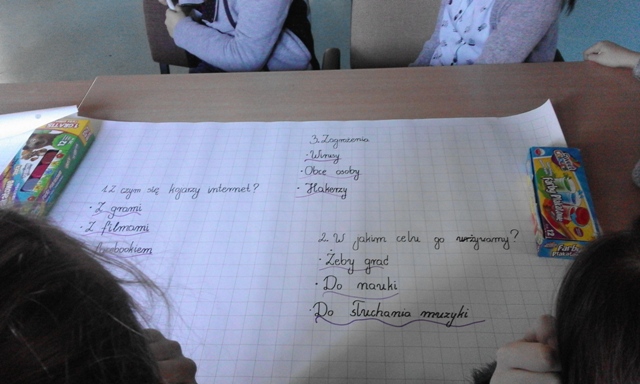 1. Z czym się kojarzy internet?
• Z grami
• Z filmami
facebookiem
2. W jakim celu go używamy?
• Żeby grać
• Do nauki
• Do słuchania muzyki
3. Zagrożenia
• Wirusy
• Obce osoby
• Hakerzy
GRATIS
Farby Plakatowe